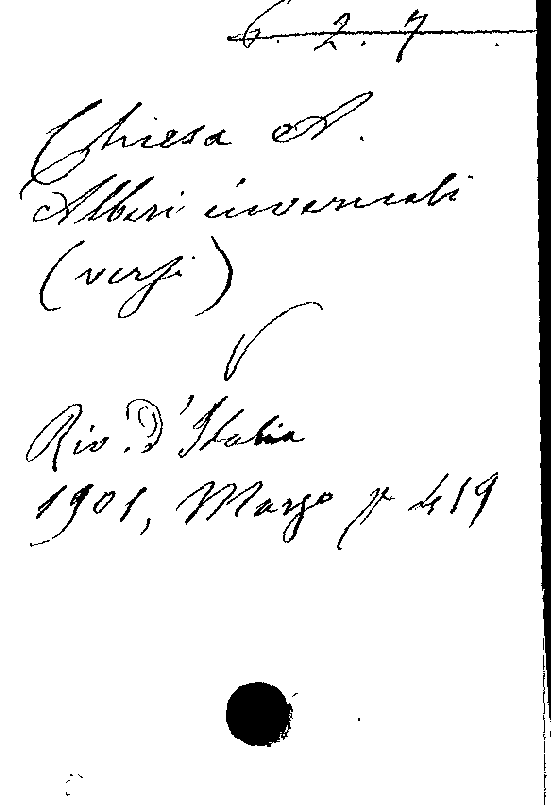 6. 2. 7.
Chiesa A.
Alberi invernali
(versi)
Riv. d'Italia
1901, Marzo p 419